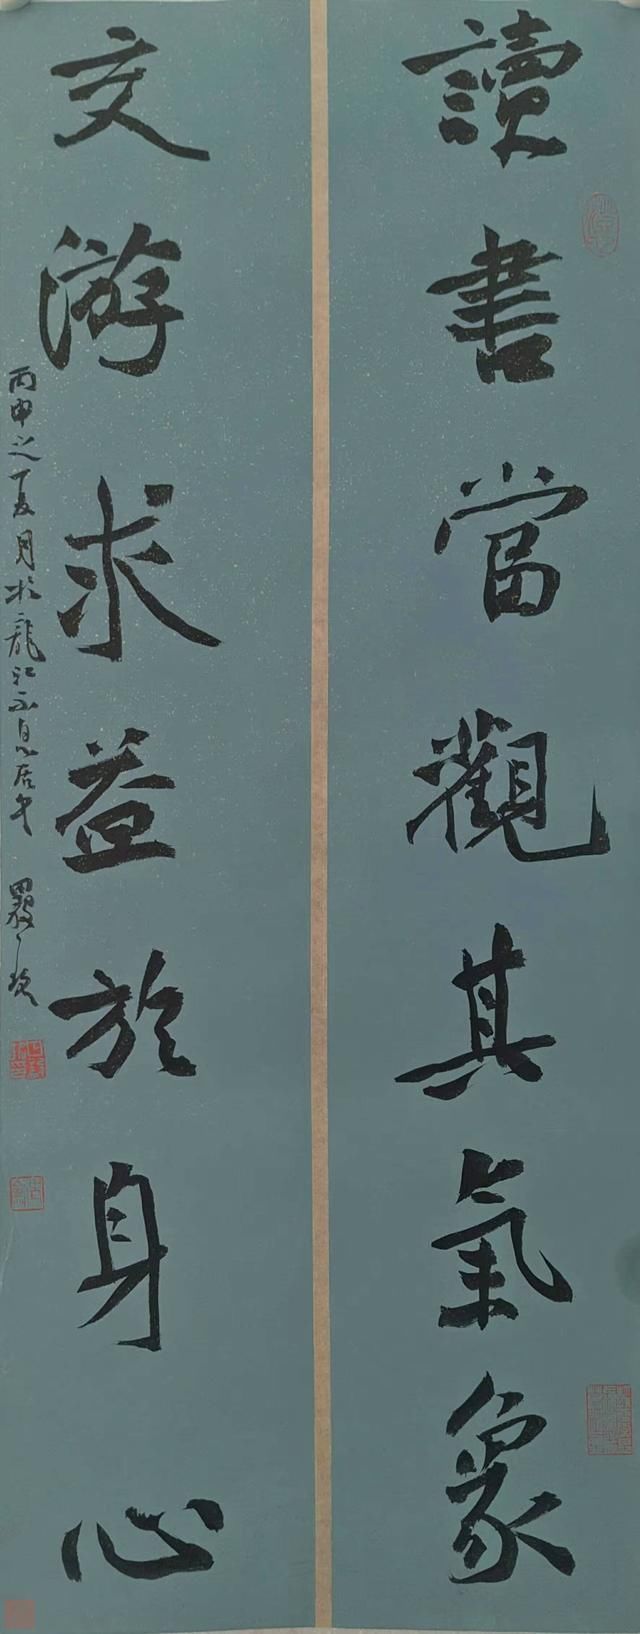 讀書當觀其氣象
交游求益於身心
丙申之夏月於龍江不息居